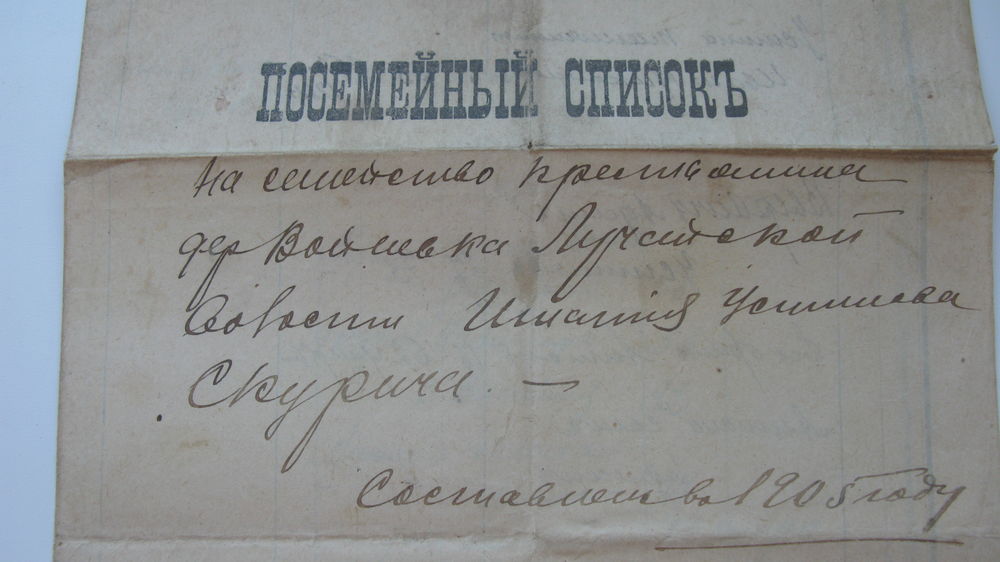 ПОСЕМЕЙНЫЙ СПИСОКЪ
на семейство крестьянина
дер Войтевка Лучайской
волости Игнатия Устинова
Скурича. —
Составлен во 1905 году